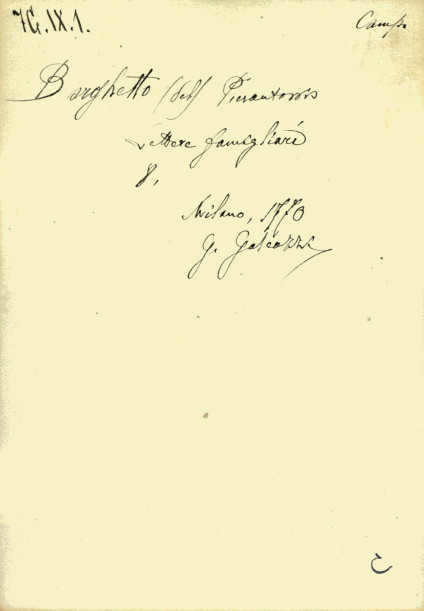 7G.IX.1.
Camp.
Borghetto (del) Pierantonio
Lettere famigliari
8,
Milano, 1770
G. Galeazzi